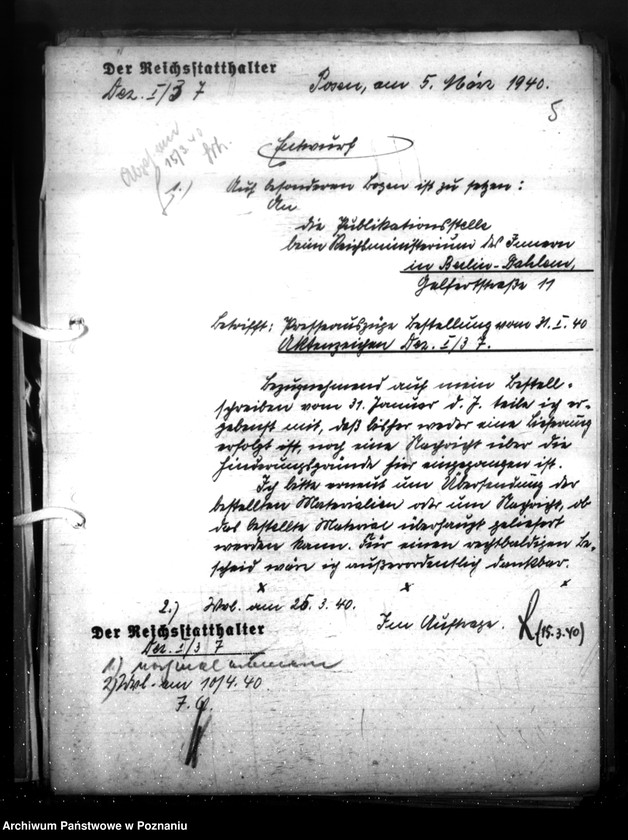 Der Reichsstatthalter
Dez. I/3 7
Posen, am 5. März 1940.
5
15/3 40
Entwurf
1.) Auf besonderen Bogen ist zu setzen:
An
die Publikationsstelle
beim Reichsministerium des Innern
in Berlin-Dahlem,
Gelfertstraße 11
Betrifft: Presseauszüge Bestellung vom 31. I. 40
Aktenzeichen Dez. I/3 7.
Bezugnehmend auf mein Bestell-
schreiben vom 31. Januar d. J. teile ich er-
gebenst mit, daß bisher weder eine Lieferung
erfolgt ist, noch eine Nachricht über die
Hinderungsgründe hier eingegangen ist.
Ich bitte erneut um Übersendung der
bestellten Materialien oder um Nachricht, ob
das bestellte Material überhaupt geliefert
werden kann. Für einen rechtbaldigen Be-
scheid wäre ich außerordentlich dankbar.
2.) Wvl. am 25.3.40.
Im Auftrage.
(15.3.40)
Der Reichsstatthalter
Dez. I/3 7
1.) nochmal
2) Wvl. am 10/4.40
Archiwum Państwowe w Poznaniu